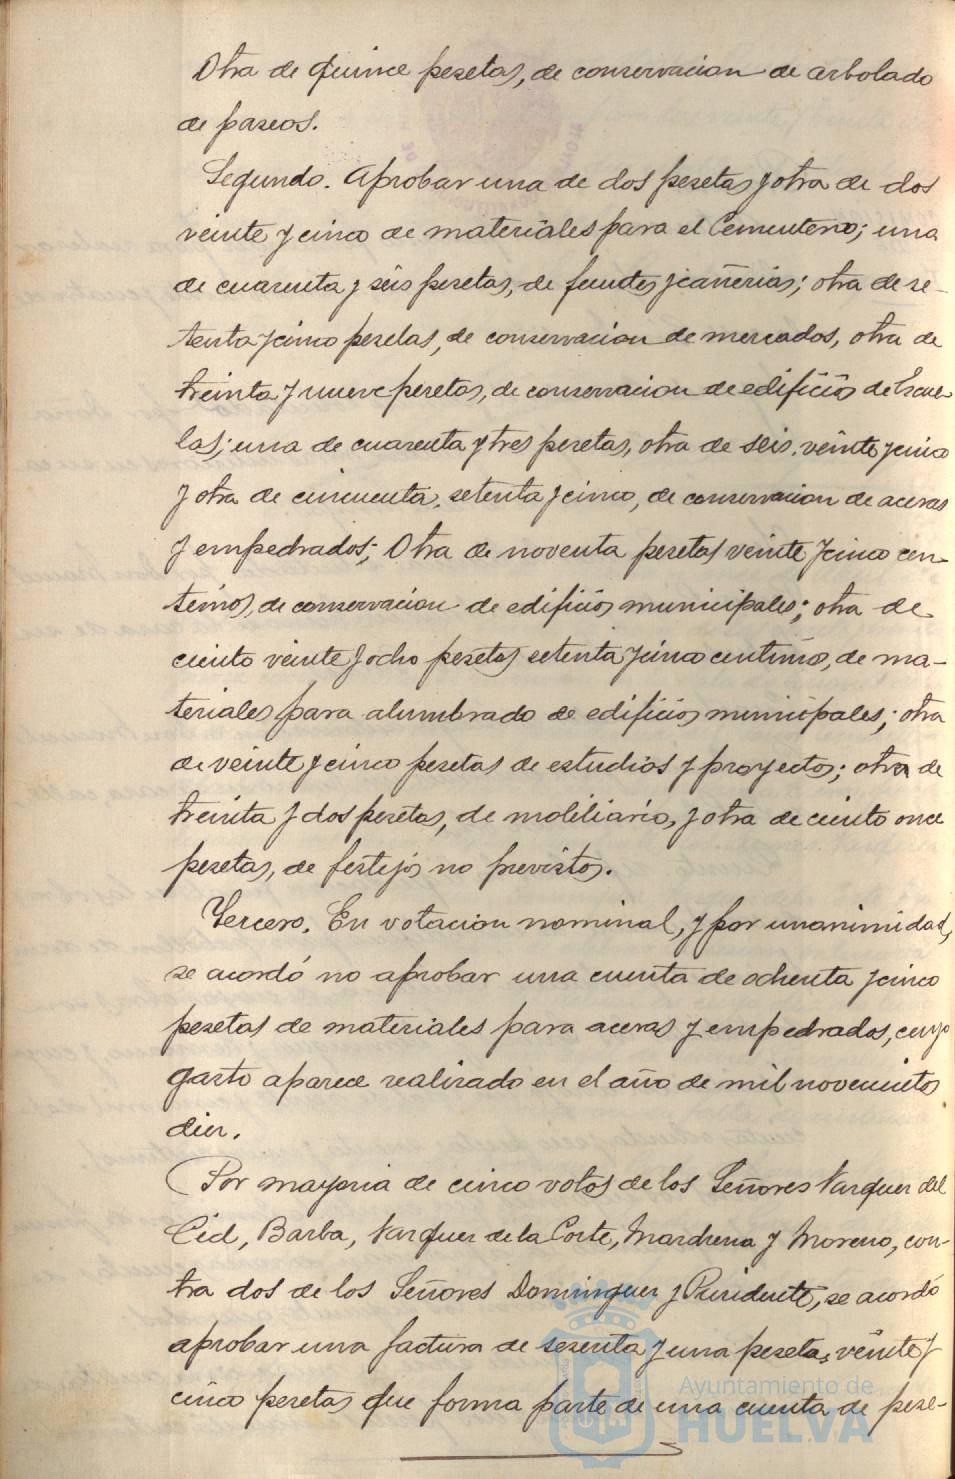 Otra de quince pesetas, de conservacion de arbolado
de paseos.
Segundo. Aprobar una de dos pesetas y otra de dos
veinte y cinco de materiales para el Cementerio; una
de cuarenta y seis pesetas, de fuentes y cañerias; otra de se-
tenta y cinco pesetas, de conservacion de mercados, otra de
treinta y nueve pesetas, de conservacion de edificios de Escue-
las; una de cuarenta y tres pesetas, otra de seis, veinte y cinco
y otra de cincuenta, setenta y cinco, de conservacion de aceras
y empedrados; Otra de noventa pesetas veinte y cinco cen-
timos, de conservacion de edificios municipales; otra de
ciento veinte y ocho pesetas setenta y cinco centimos, de ma-
teriales para alumbrado de edificios municipales; otra
de veinte y cinco pesetas de estudios y proyectos; otra de
treinta y dos pesetas, de mobiliario, y otra de ciento once
pesetas, de festejos no previstos.
Tercero. En votacion nominal, y por unanimidad,
se acordó no aprobar una cuenta de ochenta y cinco
pesetas de materiales para aceras y empedrados, cuyo
gasto aparece realizado en el año de mil novecientos
diez.
Por mayoria de cinco votos de los Señores Vazquez del
Cid, Barba, Vazquez de la Corte, Marchena y Moreno, con-
tra dos de los Señores Dominguez y Presidente, se acordó
aprobar una factura de sesenta y una pesetas veinte y
cinco pesetas que forma parte de una cuenta de pese-
Ayuntamiento de
HUELVA